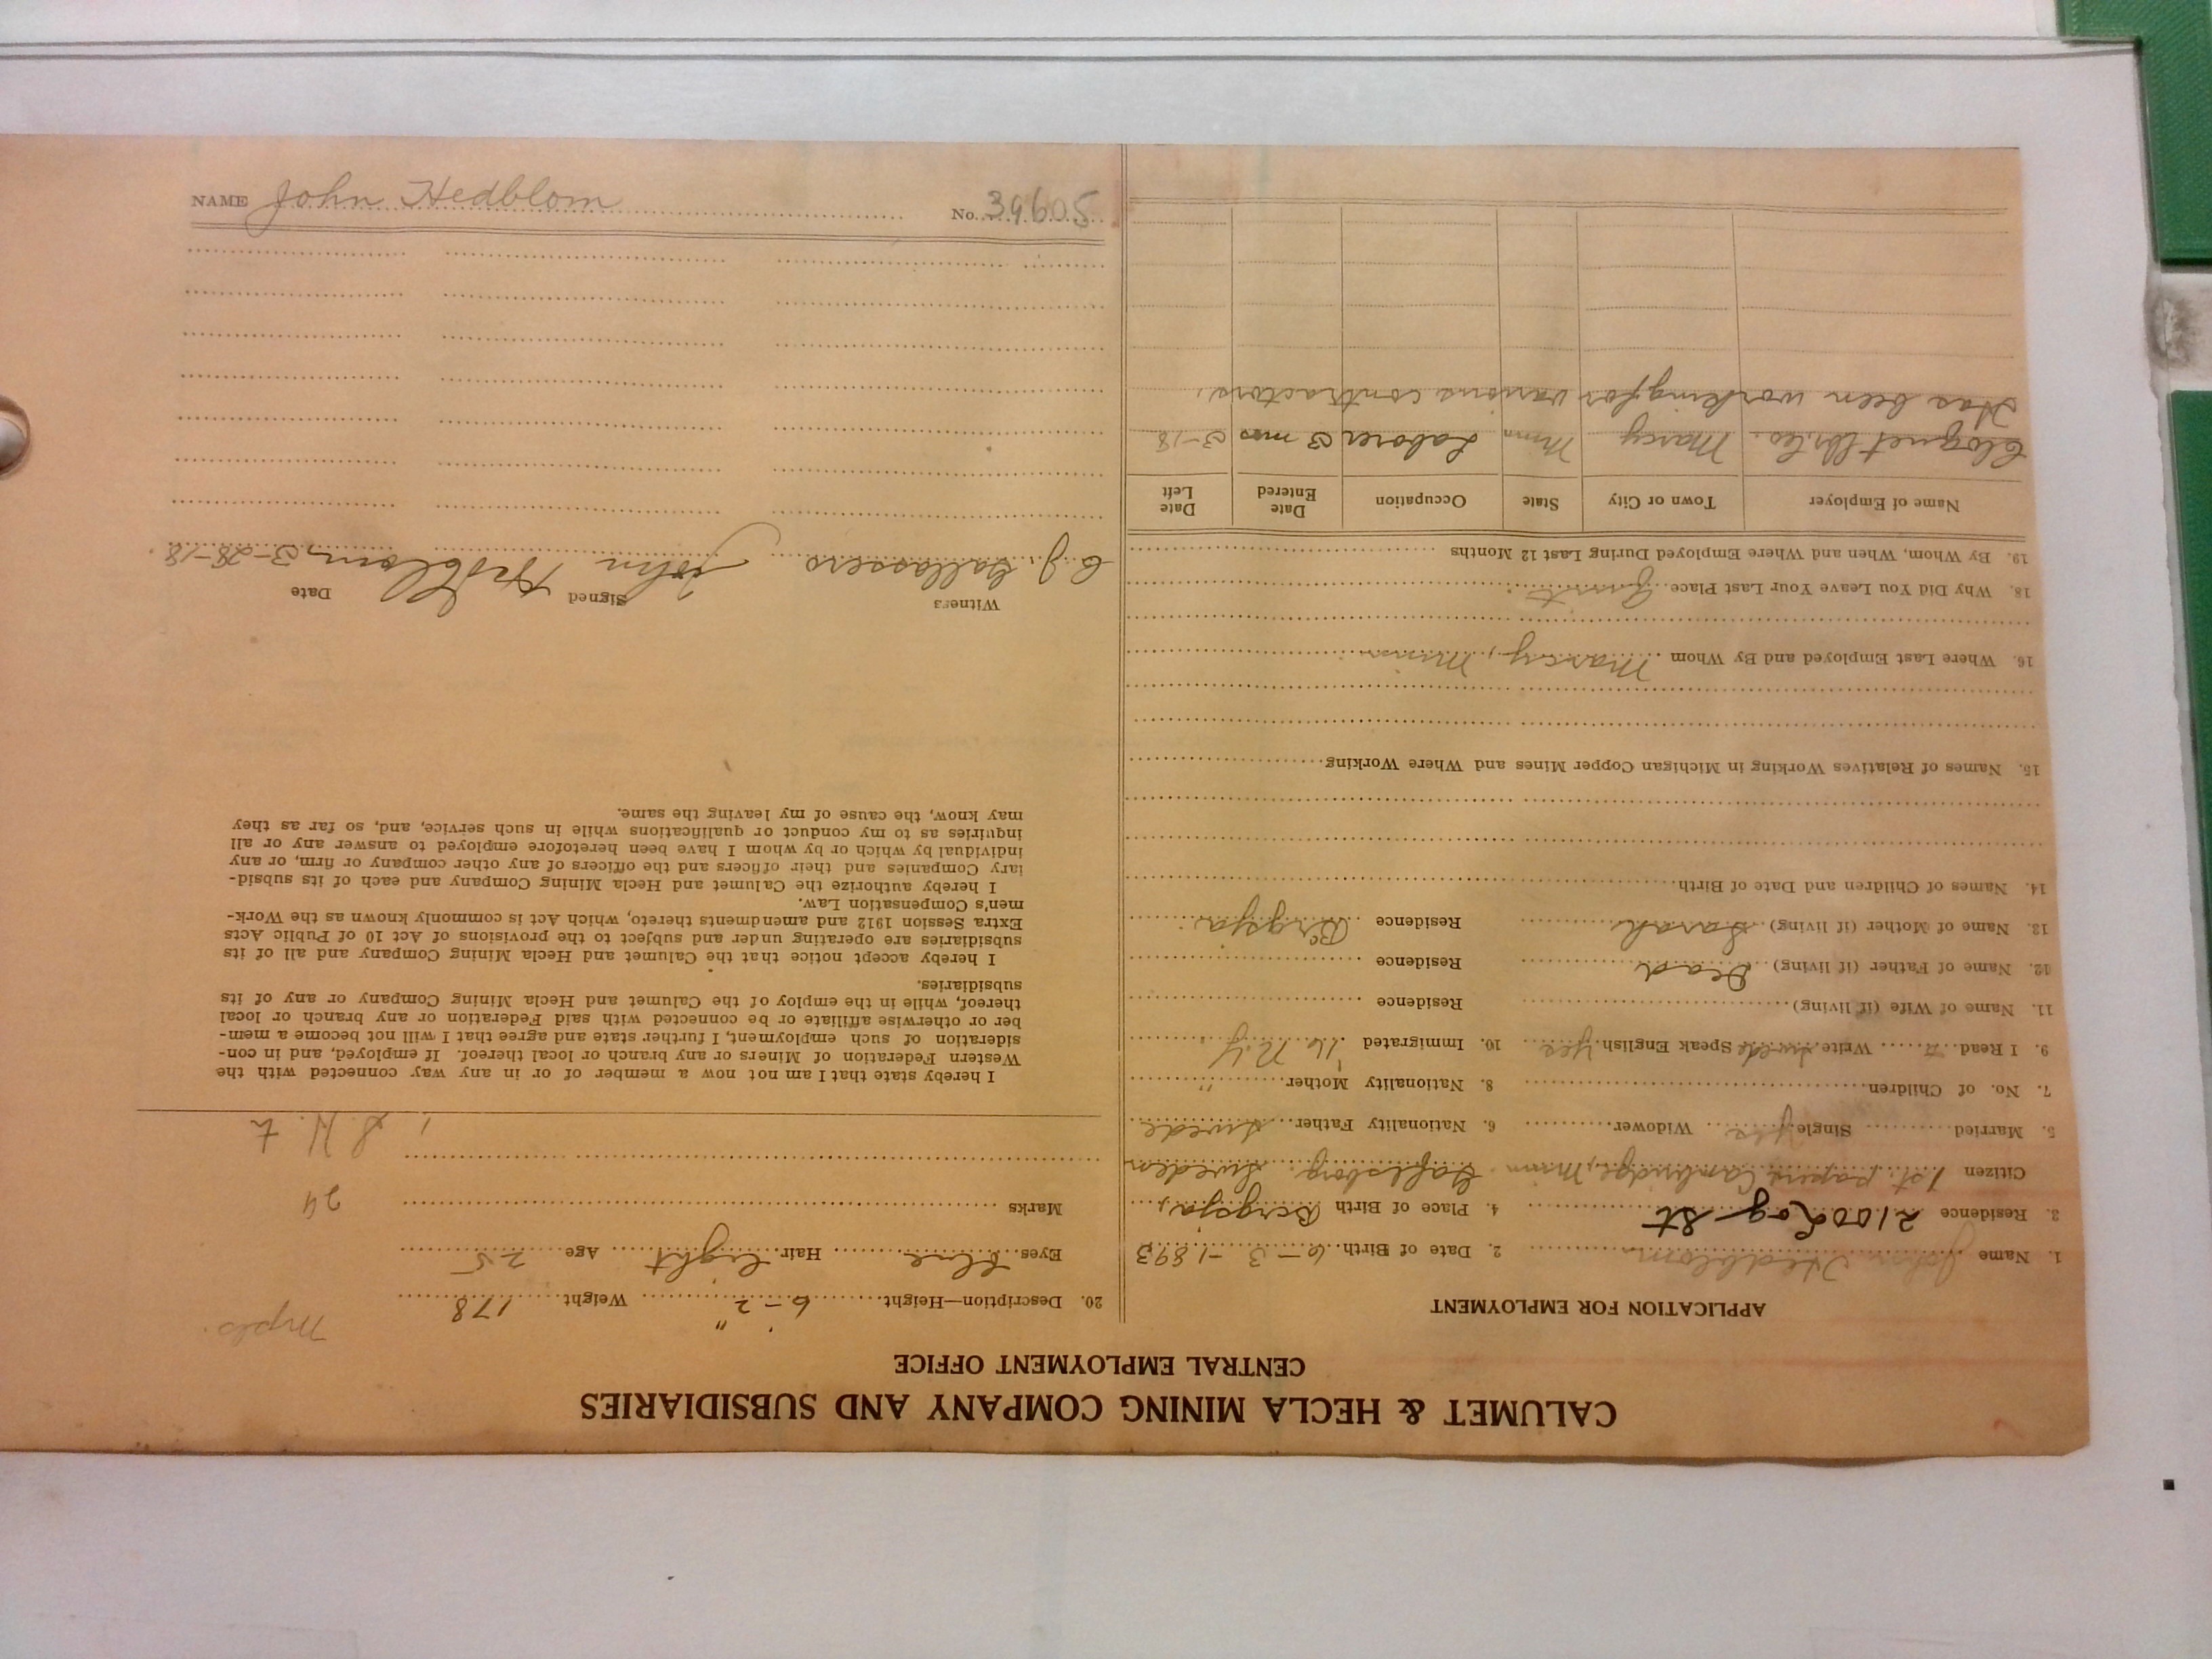 CALUMET & HECLA MINING COMPANY AND SUBSIDIARIES
CENTRAL EMPLOYMENT OFFICE
APPLICATION FOR EMPLOYMENT
1. Name John Hedblom 2. Date of Birth 6-3-1893
3. Residence 2100 Log St 4. Place of Birth Bergsja,
Citizen 1st papers Cambridge, Minn. Gafleborg. Sweden
5. Married Single yes Widower 6. Nationality Father Swede
7. No. of Children 8. Nationality Mother "
9. I Read Write Swede Speak English yes 10. Immigrated '16 N.Y.
11. Name of Wife (if living) Residence
12. Name of Father (if living) Dead Residence
13. Name of Mother (if living) Sarah Residence Bergsja.
14. Names of Children and Date of Birth
15. Names of Relatives Working in Michigan Copper Mines and Where Working
16. Where Last Employed and By Whom Marcy, Minn
18. Why Did You Leave Your Last Place Quit
19. By Whom, When and Where Employed During Last 12 Months
Name of Employer Town or City State Occupation Date Entered Date Left
Marcy Minn Laborer 3 mos 3-18
Has been working for various contractors.
Mpls.
20. Description—Height 6-2" Weight 178
Eyes blue Hair light Age 25
Marks 24
I hereby state that I am not now a member of or in any way connected with the
Western Federation of Miners or any branch or local thereof. If employed, and in con-
sideration of such employment, I further state and agree that I will not become a mem-
ber or otherwise affiliate or be connected with said Federation or any branch or local
thereof, while in the employ of the Calumet and Hecla Mining Company or any of its
subsidiaries.
I hereby accept notice that the Calumet and Hecla Mining Company and all of its
subsidiaries are operating under and subject to the provisions of Act 10 of Public Acts
Extra Session 1912 and amendments thereto, which Act is commonly known as the Work-
men's Compensation Law.
I hereby authorize the Calumet and Hecla Mining Company and each of its subsid-
iary Companies and their officers and the officers of any other company or firm, or any
individual by which or by whom I have been heretofore employed to answer any or all
inquiries as to my conduct or qualifications while in such service, and, so far as they
may know, the cause of my leaving the same.
Witness Signed Date
John Hedblom 3-28-18
NAME John Hedblom No. 39605